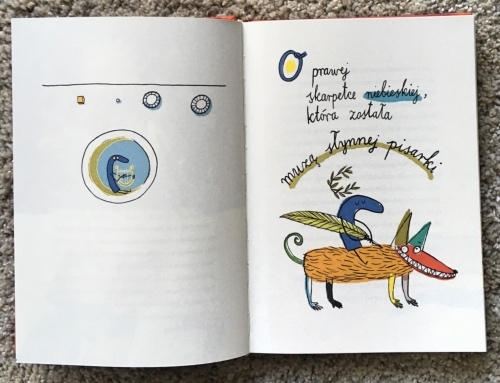 O prawej
skarpetce niebieskiej,
która została
muzą słynnej pisarki